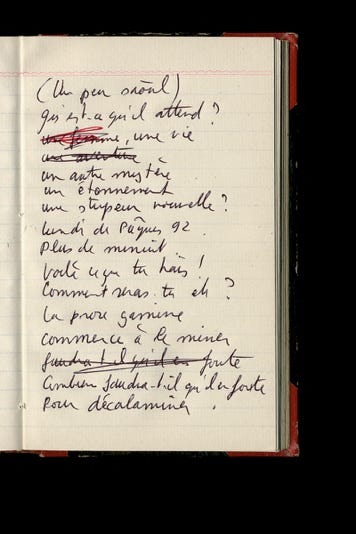 (Un peu saoul)
qu'est-ce qu'il attend ?
une femme, une vie
une aventure
un autre mystère
un étonnement
une stupeur nouvelle ?
lundi de Pâques 92.
Plus de minuit
Voilà ce que tu hais !
Comment seras-tu eh ?
La prose gamine
commence à le miner
faudra-t-il qu'il en foute
Combien faudra-t-il qu'il en foute
Pour décalaminer.